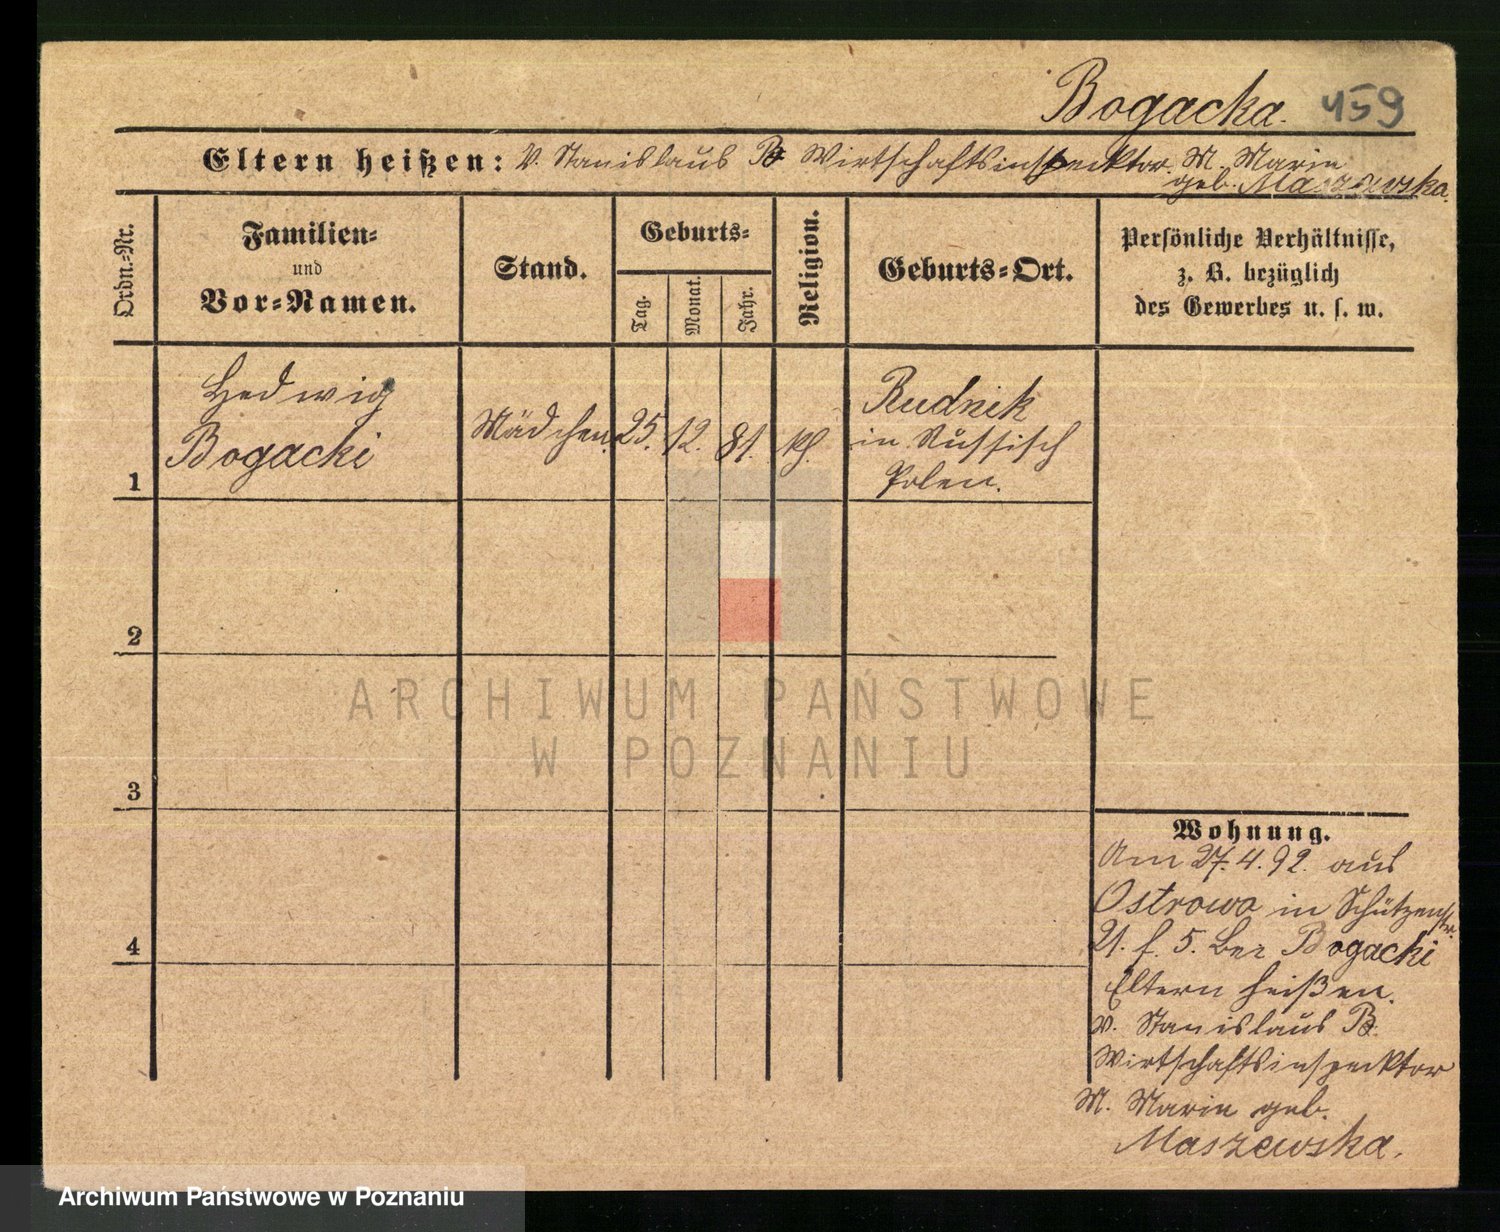 Bogacka. 459
Eltern heißen: V. Stanislaus B Wirtschaftsinspecktor. M. Marie
geb. Maszewska.
Ordn.-Nr.
Familien-
und
Vor-Namen.
Stand.
Geburts-
Tag.
Monat.
Jahr.
Religion.
Geburts-Ort.
Persönliche Verhältnisse,
z. B. bezüglich
des Gewerbes u. s. w.
Hedwig
Bogacki
Mädchen. 25. 12. 81. kh.
Rudnik
in Russisch
Polen.
1
2
3
4
ARCHIWUM PAŃSTWOWE
W POZNANIU
Wohnung.
Am 27.4.92. aus
Ostrowo in Schützenstr.
21. f. 5. bei Bogacki
Eltern heißen.
v. Stanislaus B.
Wirtschaftsinspecktor
M. Marie geb.
Maszewska.
Archiwum Państwowe w Poznaniu